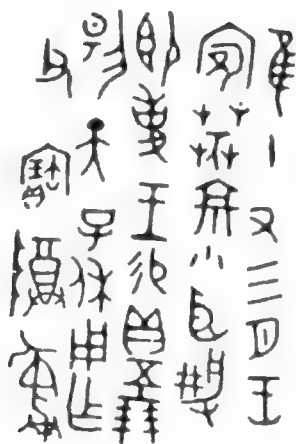 隹十又三月王
𩫖京小臣靜
即事王易貝五十朋
揚天子休用乍
父寶𨺅彝